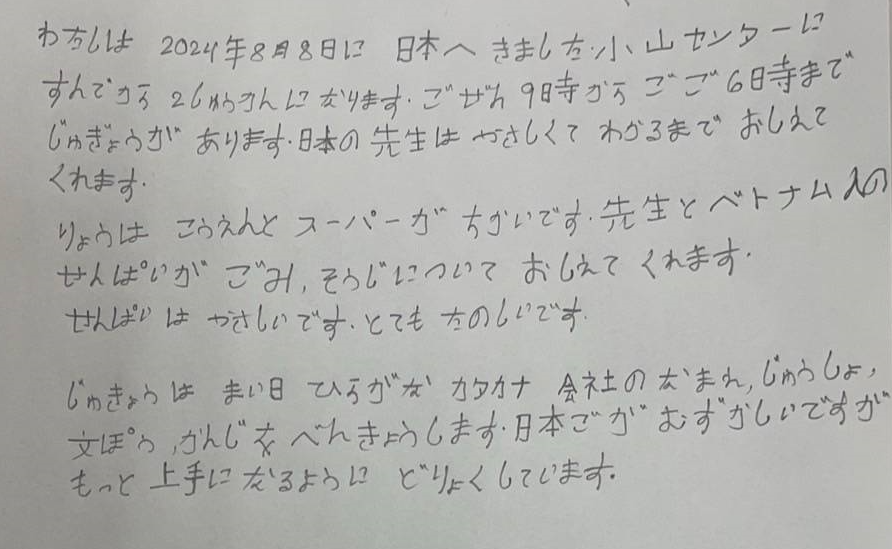 わたしは 2024年8月8日に 日本へ きました.小山センターに
すんでから 2しゅうかんに なります.ごぜん 9時から ごご 6時まで
じゅぎょうが あります.日本の 先生は やさしくて わかるまで おしえて
くれます.
りょうは こうえんと スーパーが ちかいです.先生と ベトナム人の
せんぱいが ごみ,そうじについて おしえて くれます.
せんぱいは やさしいです.とても たのしいです.
じゅきょうは まい日 ひらがな カタカナ 会社の なまれ,じゅうしょ,
文ぽう,かんじを べんきょうします.日本ごが むずかしいですが
もっと 上手に なるように どりょくしています.